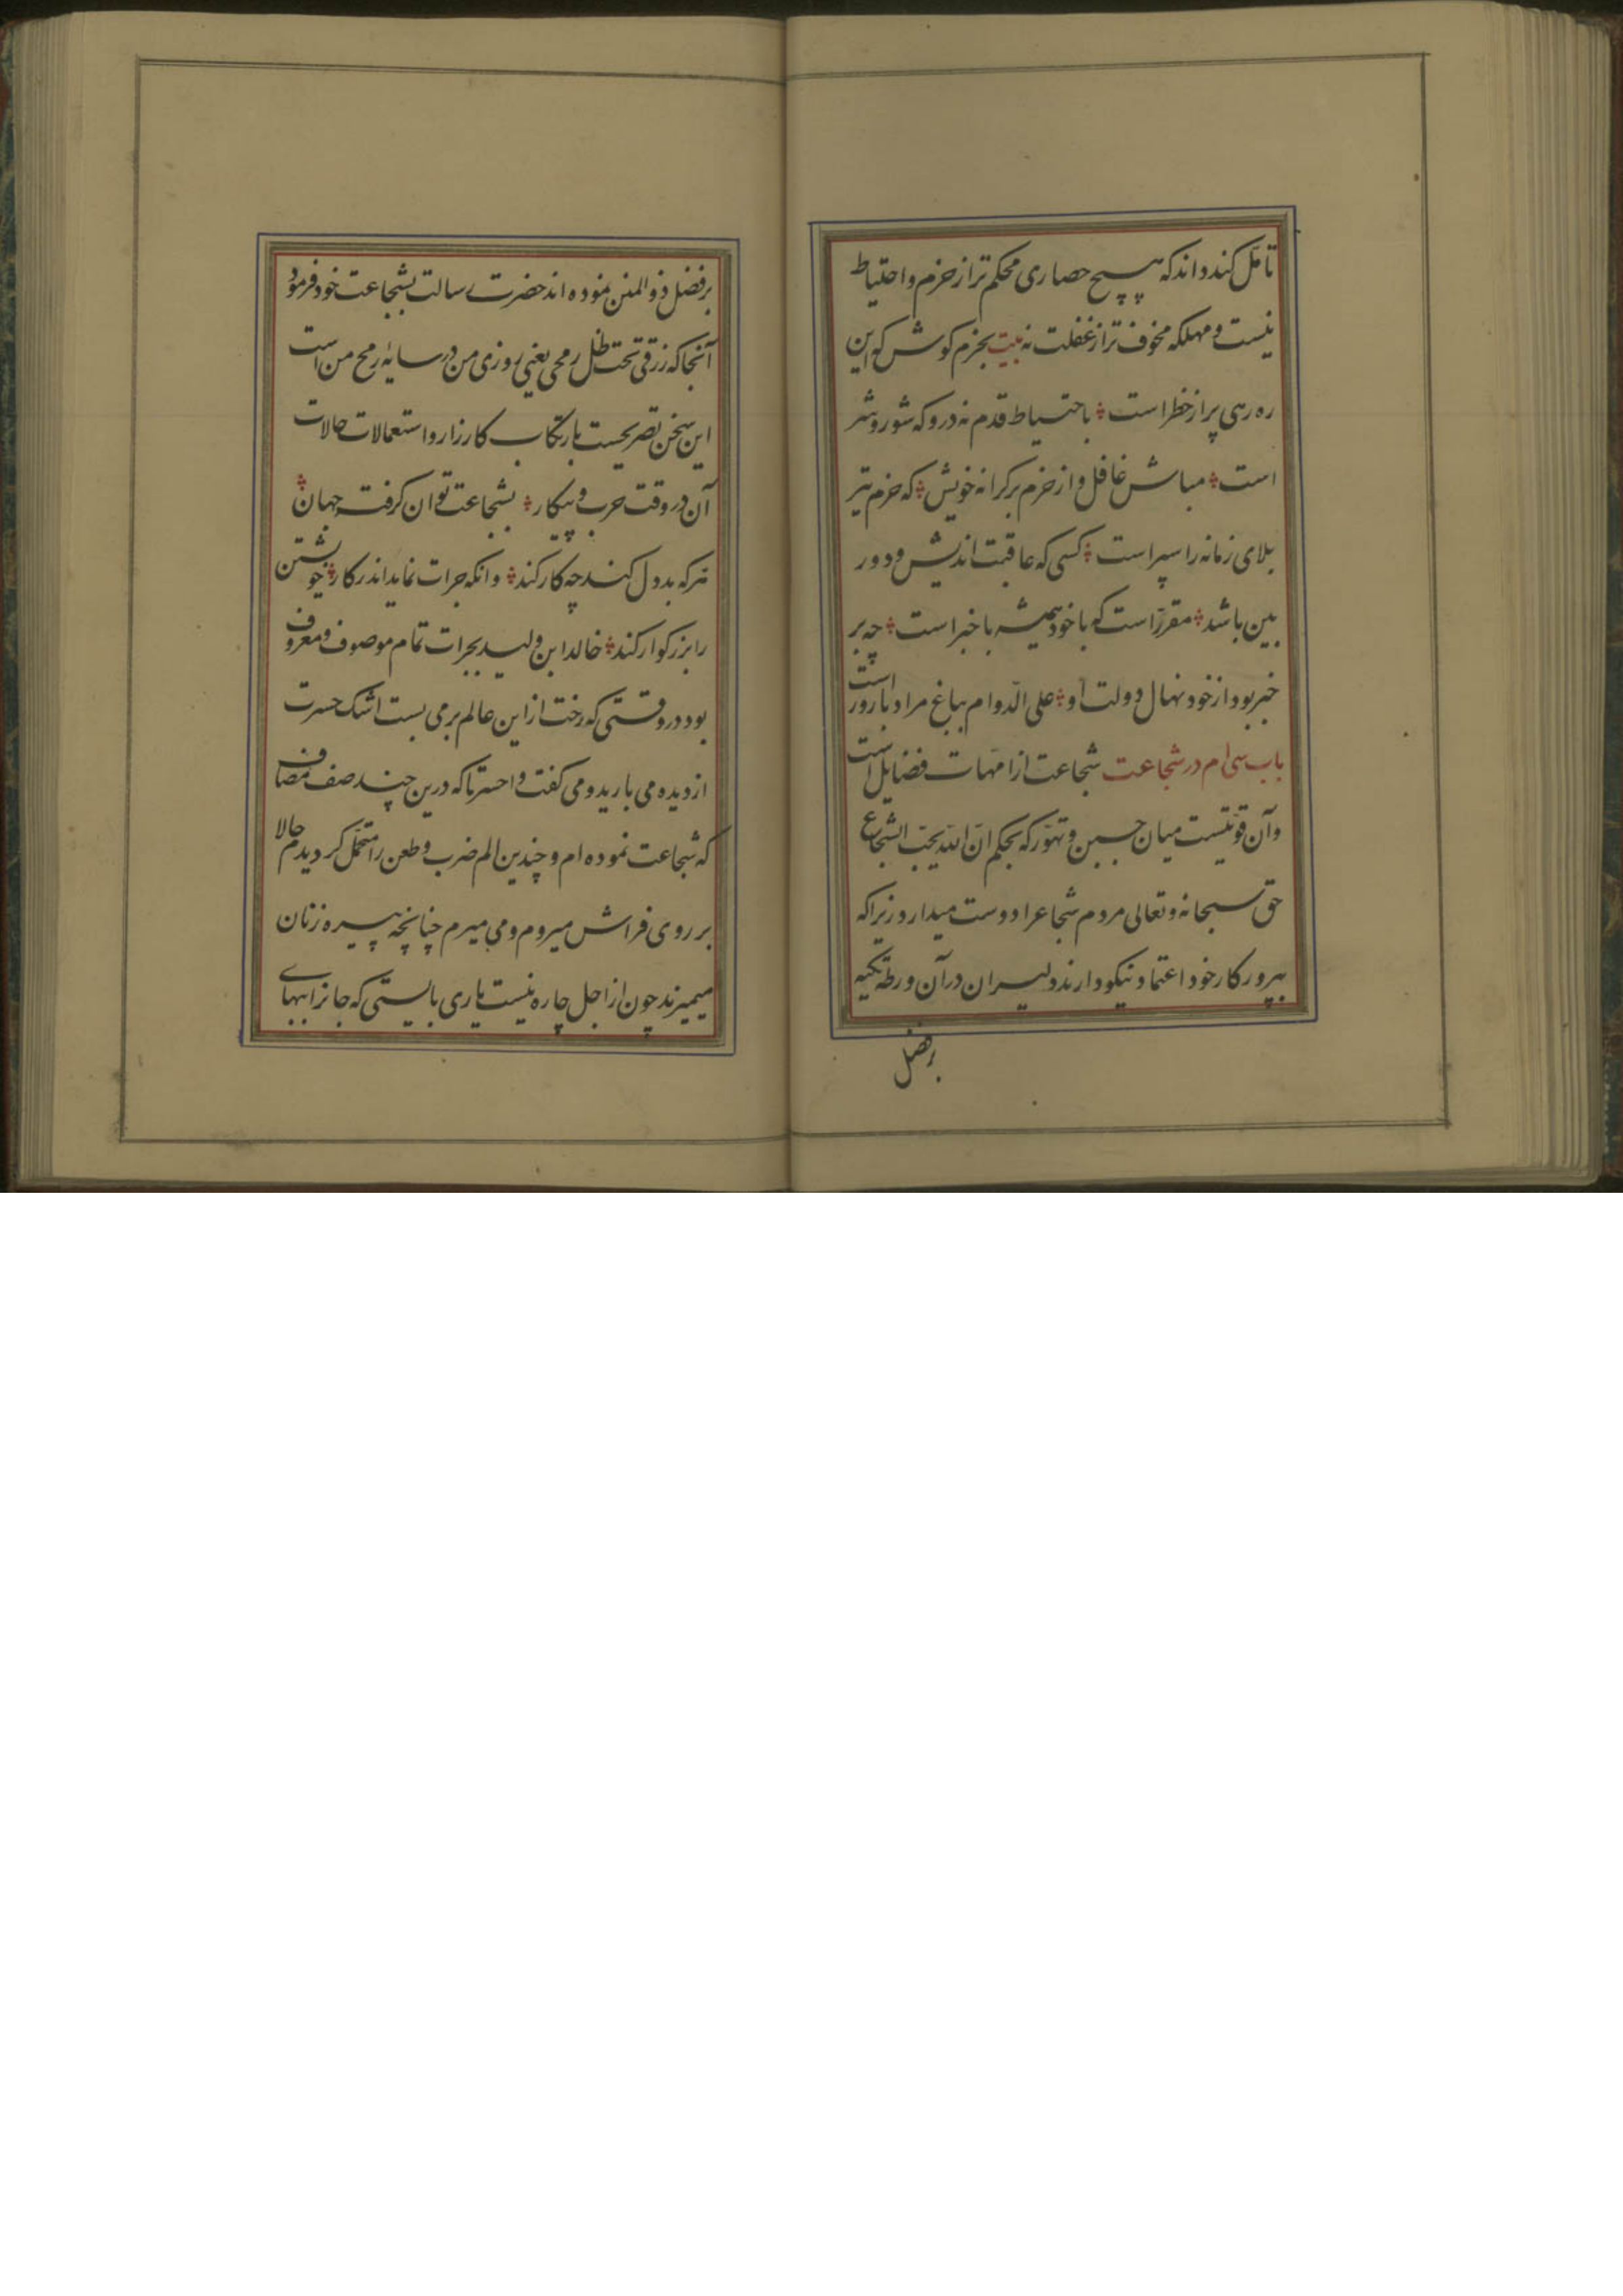 تأمّل کند داند که هیچ حصاری محکم تر از حزم و احتیاط
نیست و مهلکه مخوف تر از غفلت نه بیت بحزم کوش که این
ره رهی پر از خطر است باحتیاط قدم نه درو که شور و شر
است مباش غافل و از حزم بر کرانه خویش که حزم تیر
بلای زمانه را سپر است کسی که عاقبت اندیش و دور
بین باشد مقرّر است که با خود همیشه با خبر است چه بر
خبر بود از خود نهال دولت او علی الدّوام بباغ مراد بارور است
باب سی ام در شجاعت شجاعت از امّهات فضایل است
و آن قوّتیست میان جبن و تهوّر که بحکم انّ الله یحبّ الشجاع
حق سبحانه و تعالی مردم شجاع را دوست میدارد زیرا که
بپرورکار خود اعتماد نیکو دارند و لیران در آن ورطه تکیه
بر فضل
بر فضل ذو المنن نموده اند حضرت رسالت بشجاعت خود فرمود
آنجا که رزقی تحت ظلّ رمحی یعنی روزی من در سایه رمح من است
این سخن تصریحست بارتکاب کارزار و استعمالات حالات
آن در وقت حرب و پیکار بشجاعت توان گرفت جهان
هر که بد دل کند چه کار کند وانکه جرات نماید اندر کار خویشتن
را بزرکوار کند خالد ابن ولید بجرات تمام موصوف و معروف
بود در وقتی که رخت از این عالم بر می بست اشک حسرت
از دیده می بارید و می کفت وا حسرتا که درین چند صف مصاف
که شجاعت نموده ام و چندین الم ضرب و طعن را متحمّل کردیدم حالا
بر روی فراش میروم و می میرم چنانچه پیره زنان
میمیرند چون از اجل چاره نیست باری بایستی که جانرا ببهای